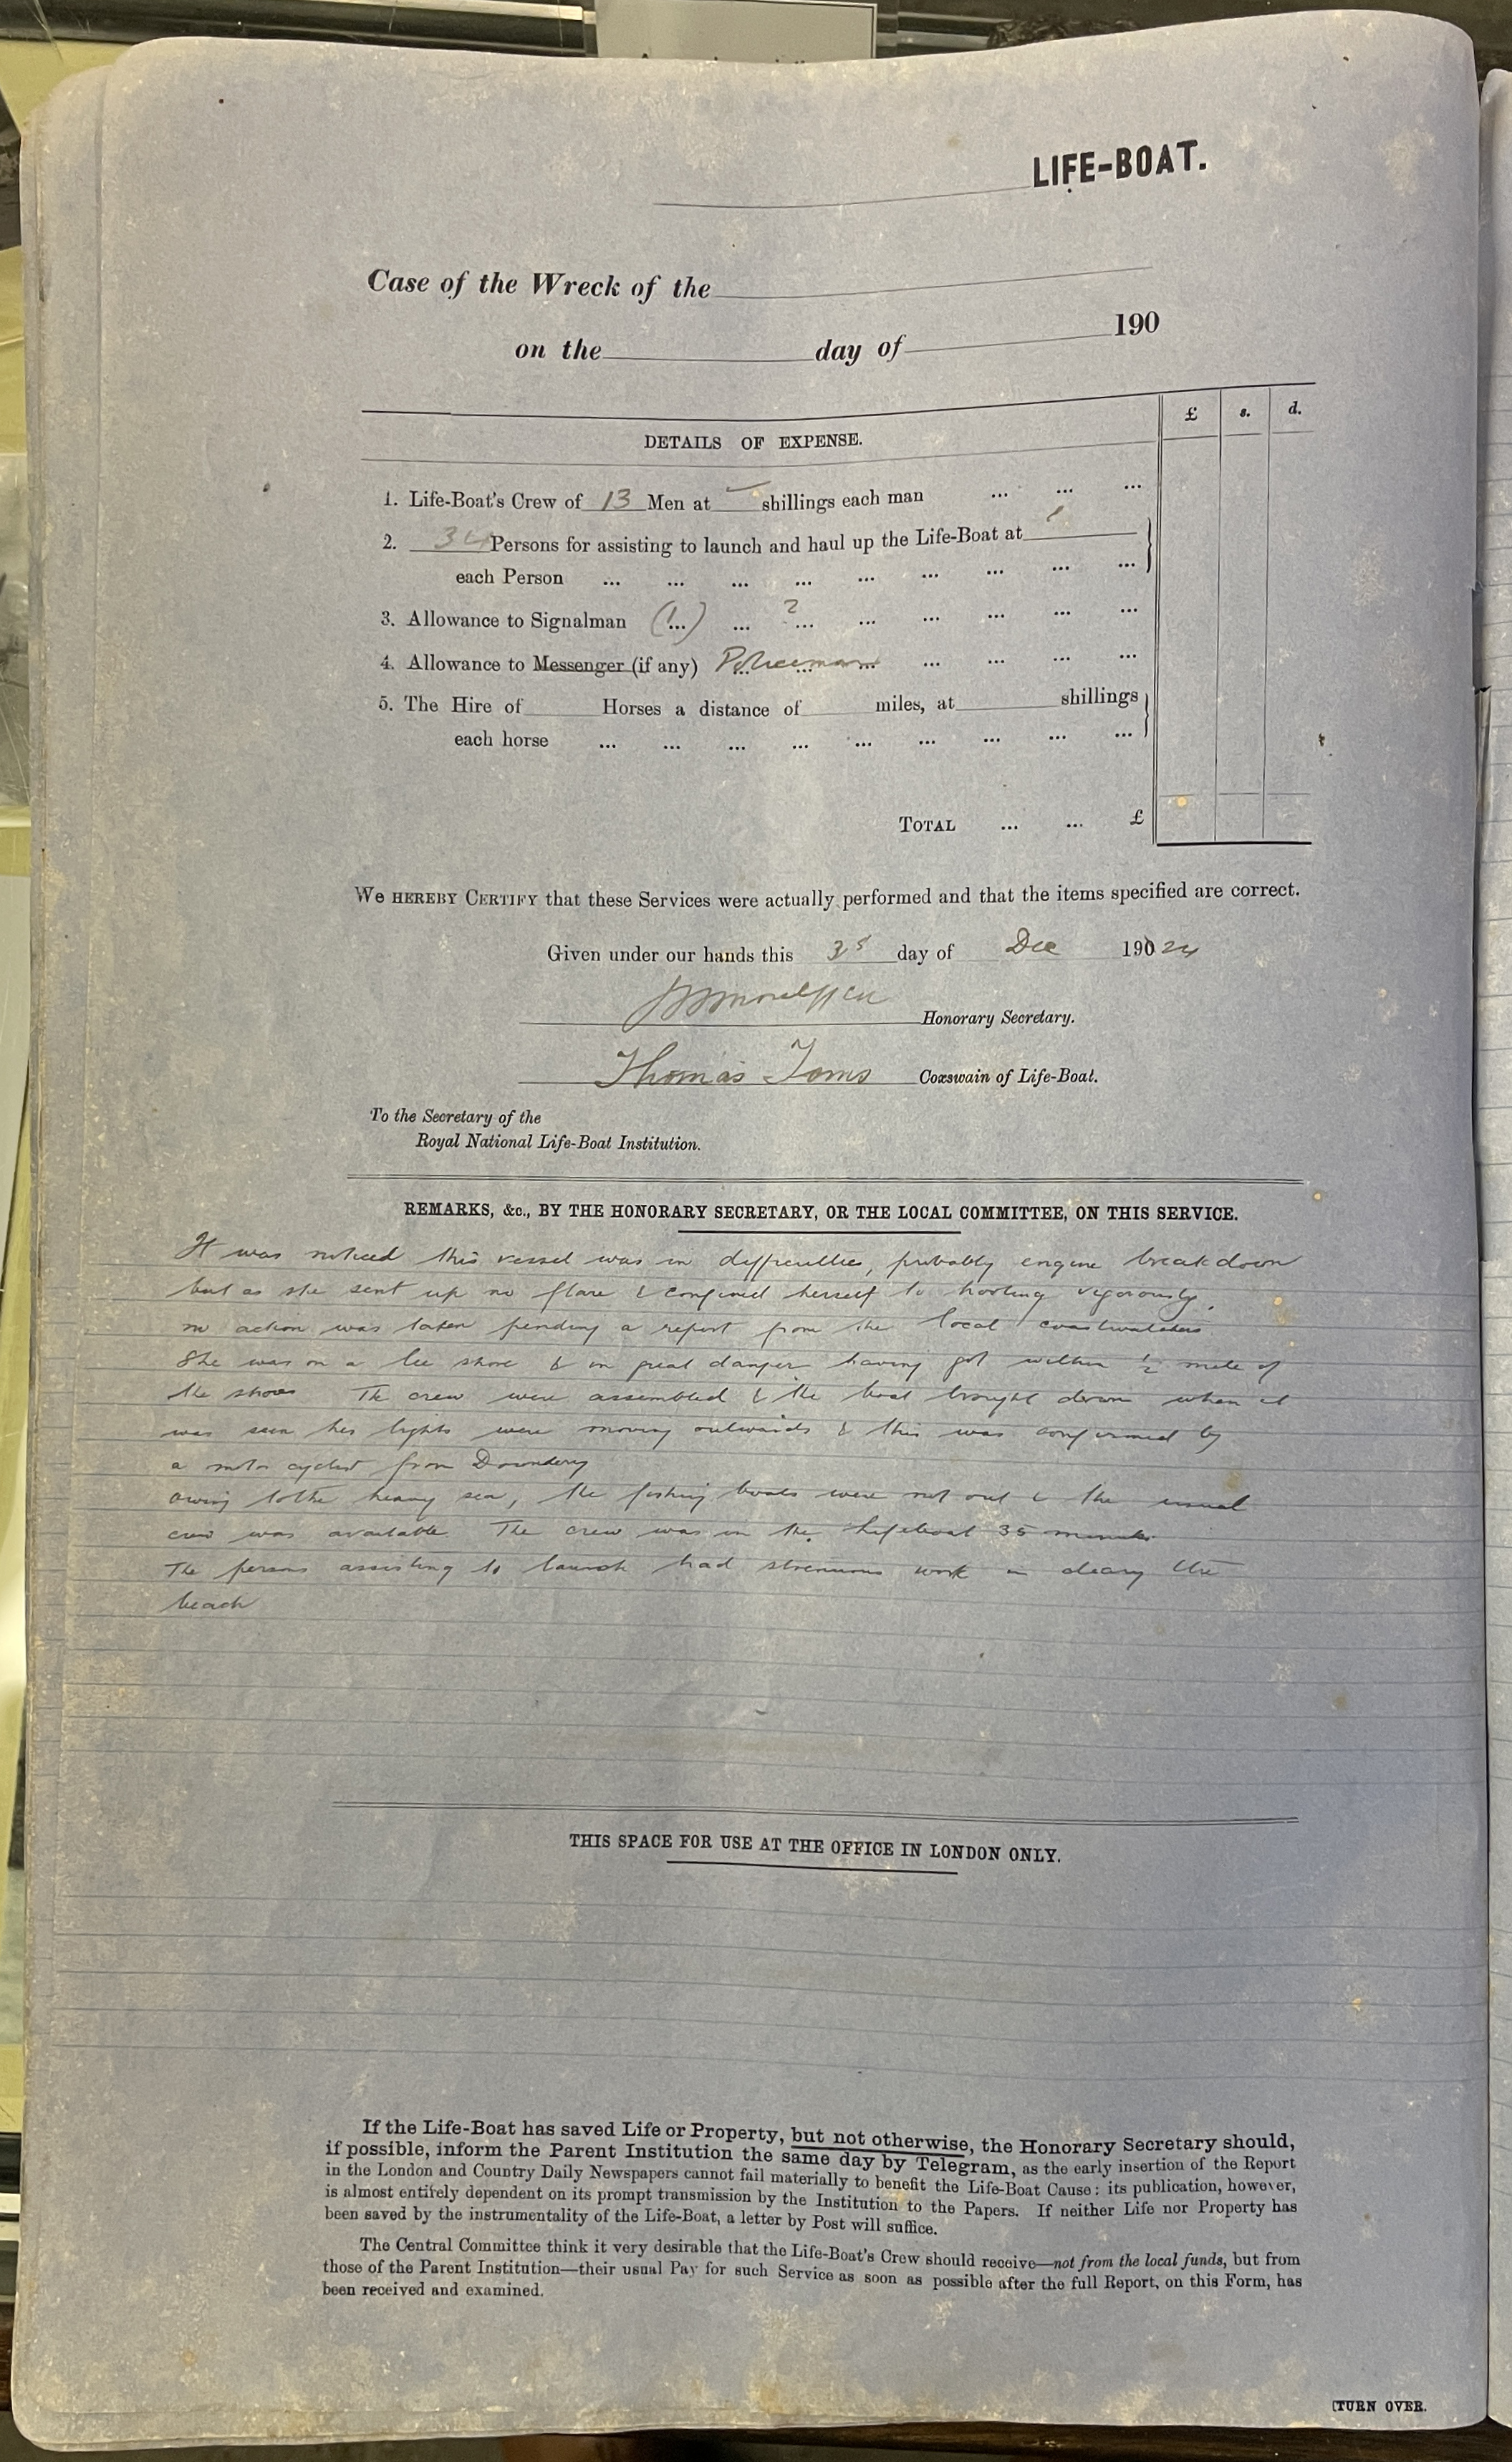 LIFE-BOAT.
Case of the Wreck of the
on the day of 190
£ s. d.
DETAILS OF EXPENSE.
1. Life-Boat's Crew of 13 Men at shillings each man ... ... ...
2. 34 Persons for assisting to launch and haul up the Life-Boat at
each Person ... ... ... ... ... ... ... ... ...
3. Allowance to Signalman (1...) ... ?... ... ... ... ... ...
4. Allowance to Messenger (if any) Policeman ... ... ... ... ... ...
5. The Hire of Horses a distance of miles, at shillings
each horse ... ... ... ... ... ... ... ... ...
TOTAL ... ... £
We HEREBY CERTIFY that these Services were actually performed and that the items specified are correct.
Given under our hands this day of Dec 190 24
Honorary Secretary.
Thomas Toms Coxswain of Life-Boat.
To the Secretary of the
Royal National Life-Boat Institution.
REMARKS, &c., BY THE HONORARY SECRETARY, OR THE LOCAL COMMITTEE, ON THIS SERVICE.
It was noticed this vessel was in difficulties, probably engine breakdown
but as she sent up no flare & confined herself to hooting vigorously,
no action was taken pending a report from the local coastwatchers
She was on a lee shore & in great danger having got within ½ mile of
the shore The crew were assembled & the boat brought down when it
was seen her lights were moving outwards & this was confirmed by
a motor cyclist from Downderry
owing to the heavy sea, the fishing boats were not out & the usual
crew was available. The crew was in the lifeboat 35 minutes.
The persons assisting to launch had strenuous work in clearg the
beach
THIS SPACE FOR USE AT THE OFFICE IN LONDON ONLY.
If the Life-Boat has saved Life or Property, but not otherwise, the Honorary Secretary should,
if possible, inform the Parent Institution the same day by Telegram, as the early insertion of the Report
in the London and Country Daily Newspapers cannot fail materially to benefit the Life-Boat Cause: its publication, however,
is almost entirely dependent on its prompt transmission by the Institution to the Papers. If neither Life nor Property has
been saved by the instrumentality of the Life-Boat, a letter by Post will suffice.
The Central Committee think it very desirable that the Life-Boat's Crew should receive—not from the local funds, but from
those of the Parent Institution—their usual Pay for such Service as soon as possible after the full Report, on this Form, has
been received and examined.
[TURN OVER.